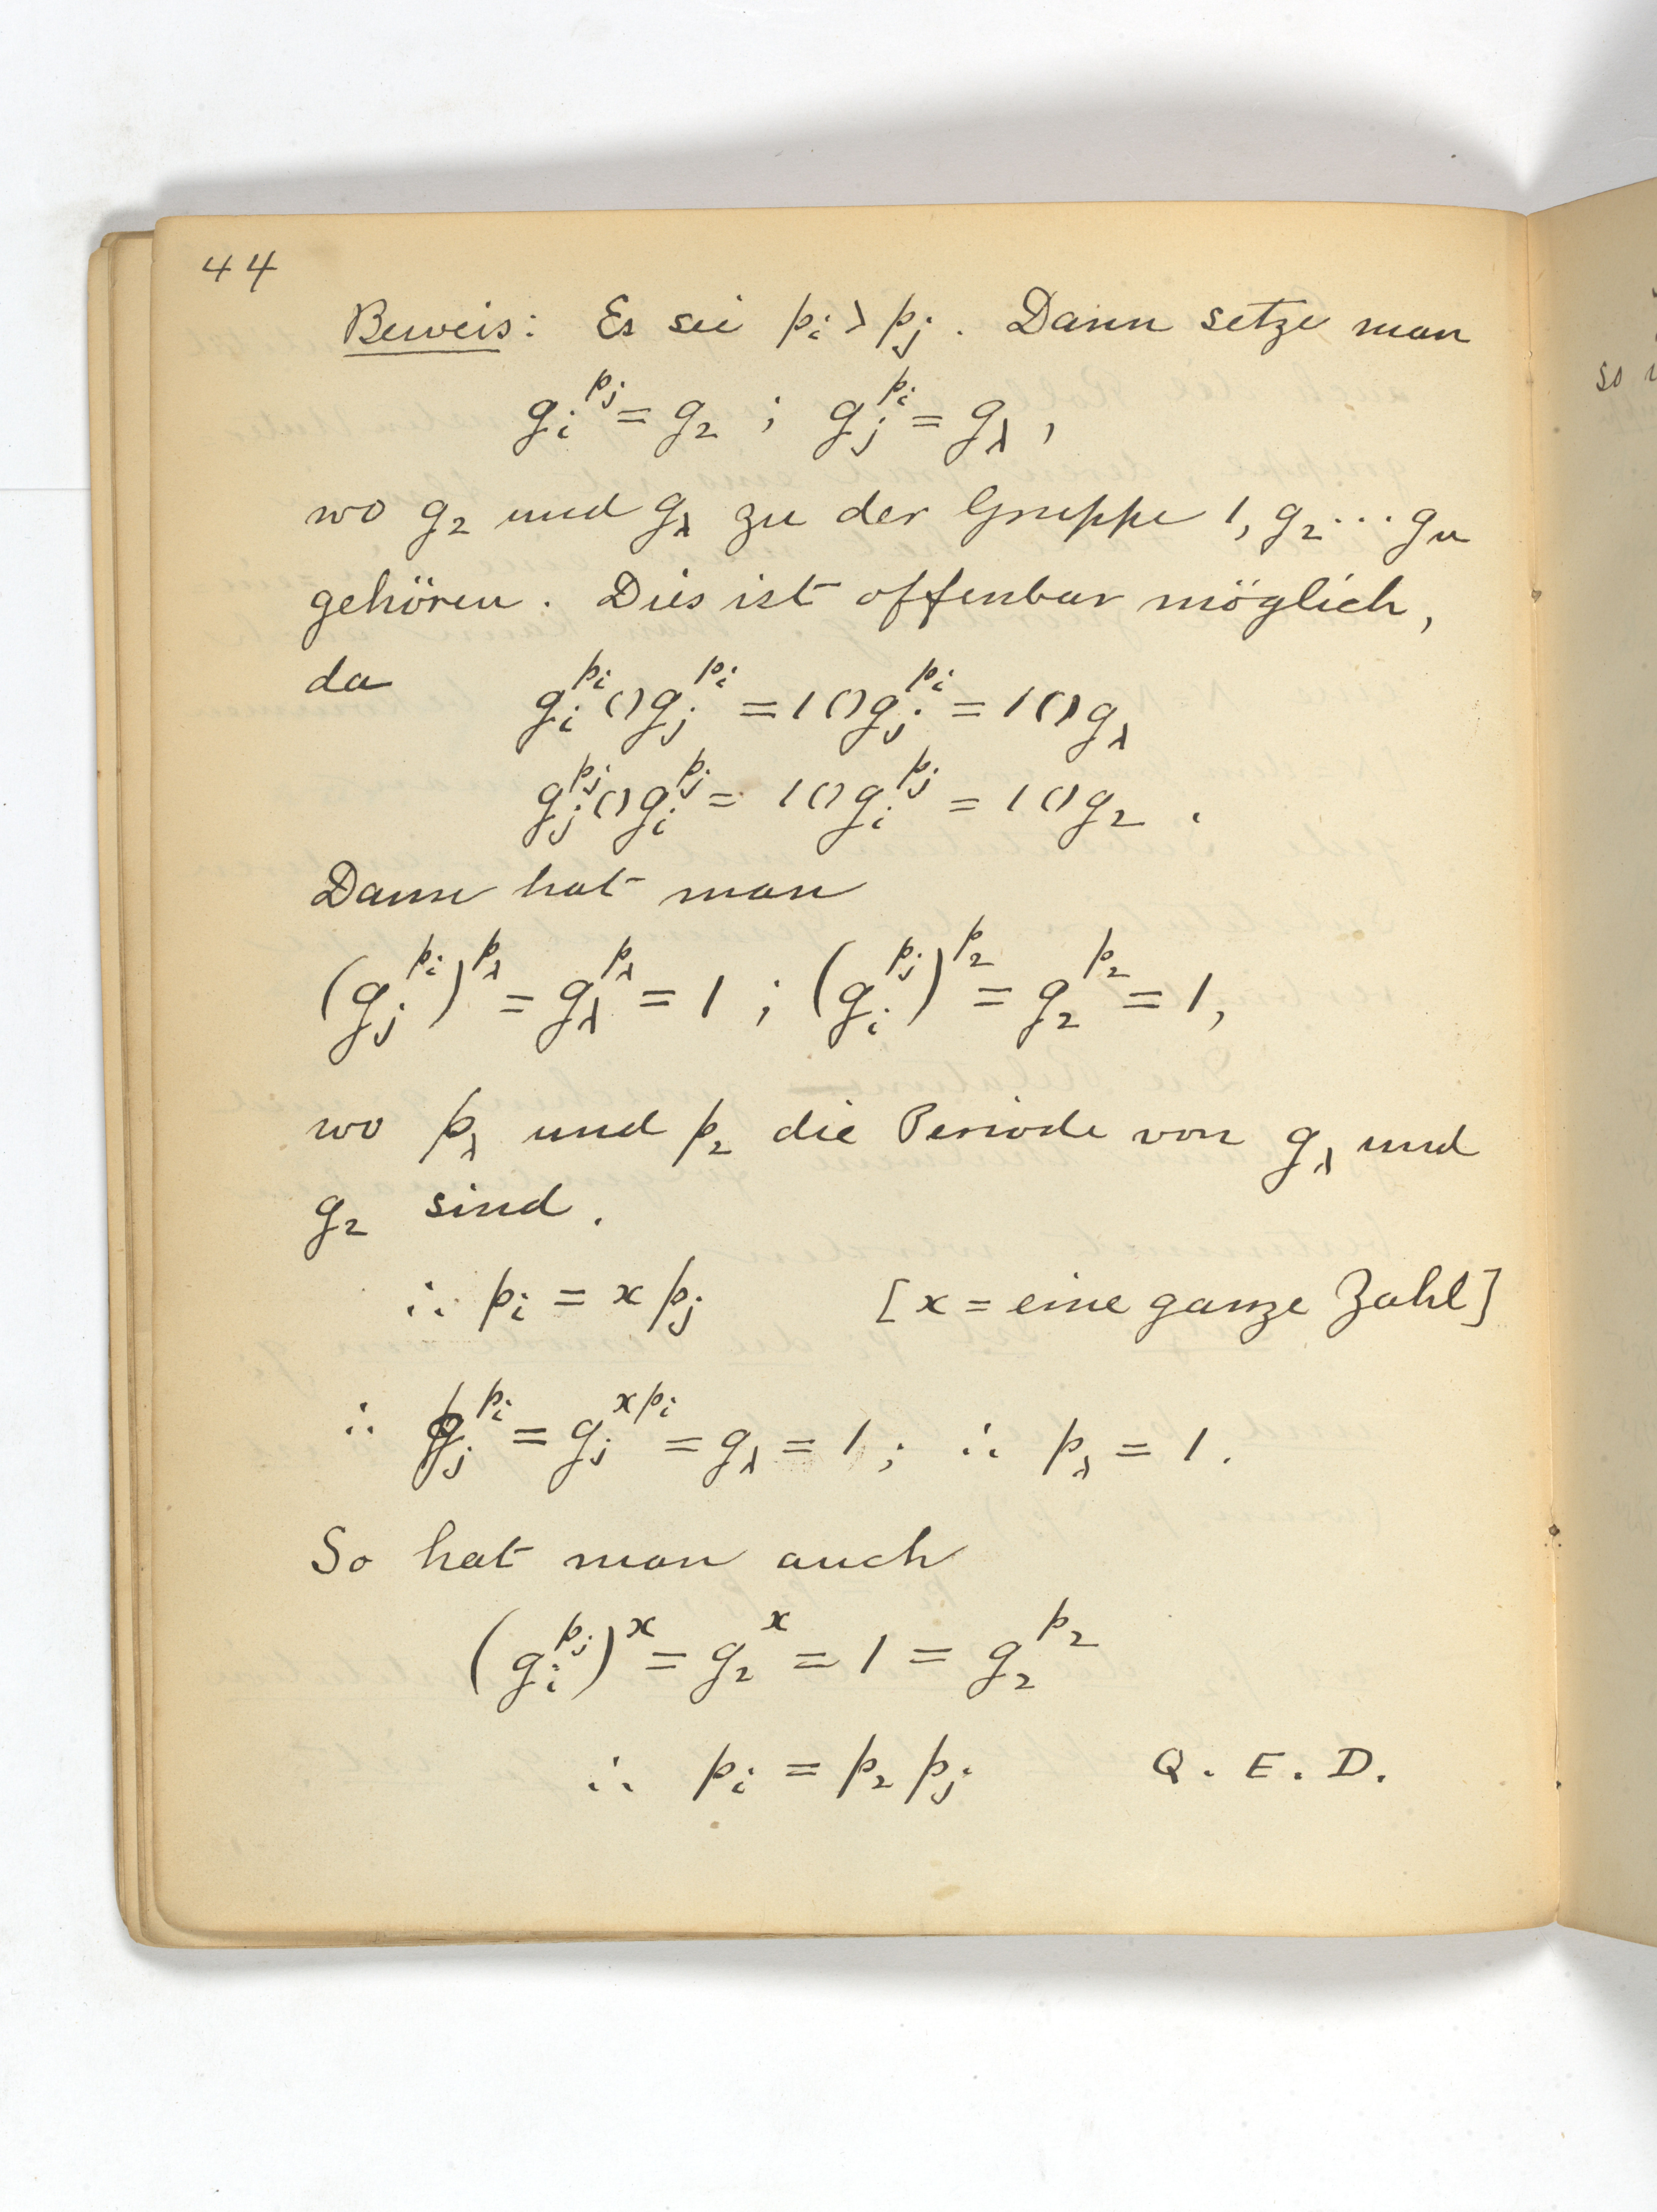 44
Beweis: Es sei p_i > p_j. Dann setze man
g_i^{p_j} = g_2 ; g_j^{p_i} = g_λ ,
wo g_2 und g_λ zu der Gruppe 1, g_2 ... g_n
gehören. Dies ist offenbar möglich,
da g_i^{p_i} () g_j^{p_i} = 1 () g_j^{p_i} = 1 () g_λ
g_j^{p_j} () g_i^{p_j} = 1 () g_i^{p_j} = 1 () g_2 .
Dann hat man
(g_j^{p_i})^{p_λ} = g_λ^{p_λ} = 1 ; (g_i^{p_j})^{p_2} = g_2^{p_2} = 1,
wo p_λ und p_2 die Periode von g_λ und
g_2 sind.
∴ p_i = x p_j [x = eine ganze Zahl]
∴ g_j^{p_i} = g_j^{x p_i} = g_λ = 1 ; ∴ p_λ = 1.
So hat man auch
(g_i^{p_j})^x = g_2^x = 1 = g_2^{p_2}
∴ p_i = p_2 p_j Q. E. D.
so